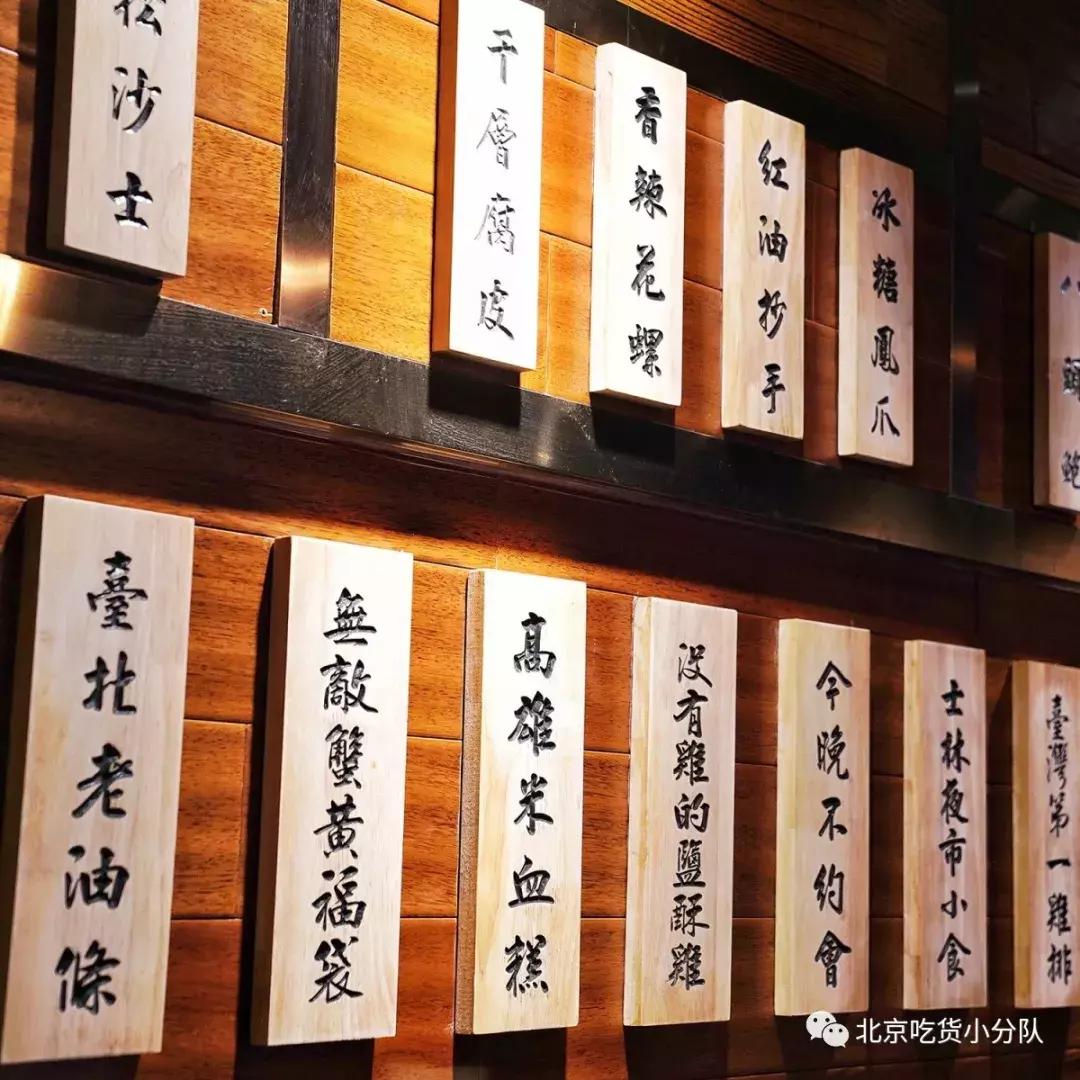 松沙士
千層腐皮
香辣花螺
红油抄手
冰糖鳳爪
八頭鮑
臺北老油條
無敵蟹黃福袋
高雄米血糕
没有雞的鹽酥雞
今晚不約會
士林夜市小食
臺灣第一雞排
北京吃货小分队